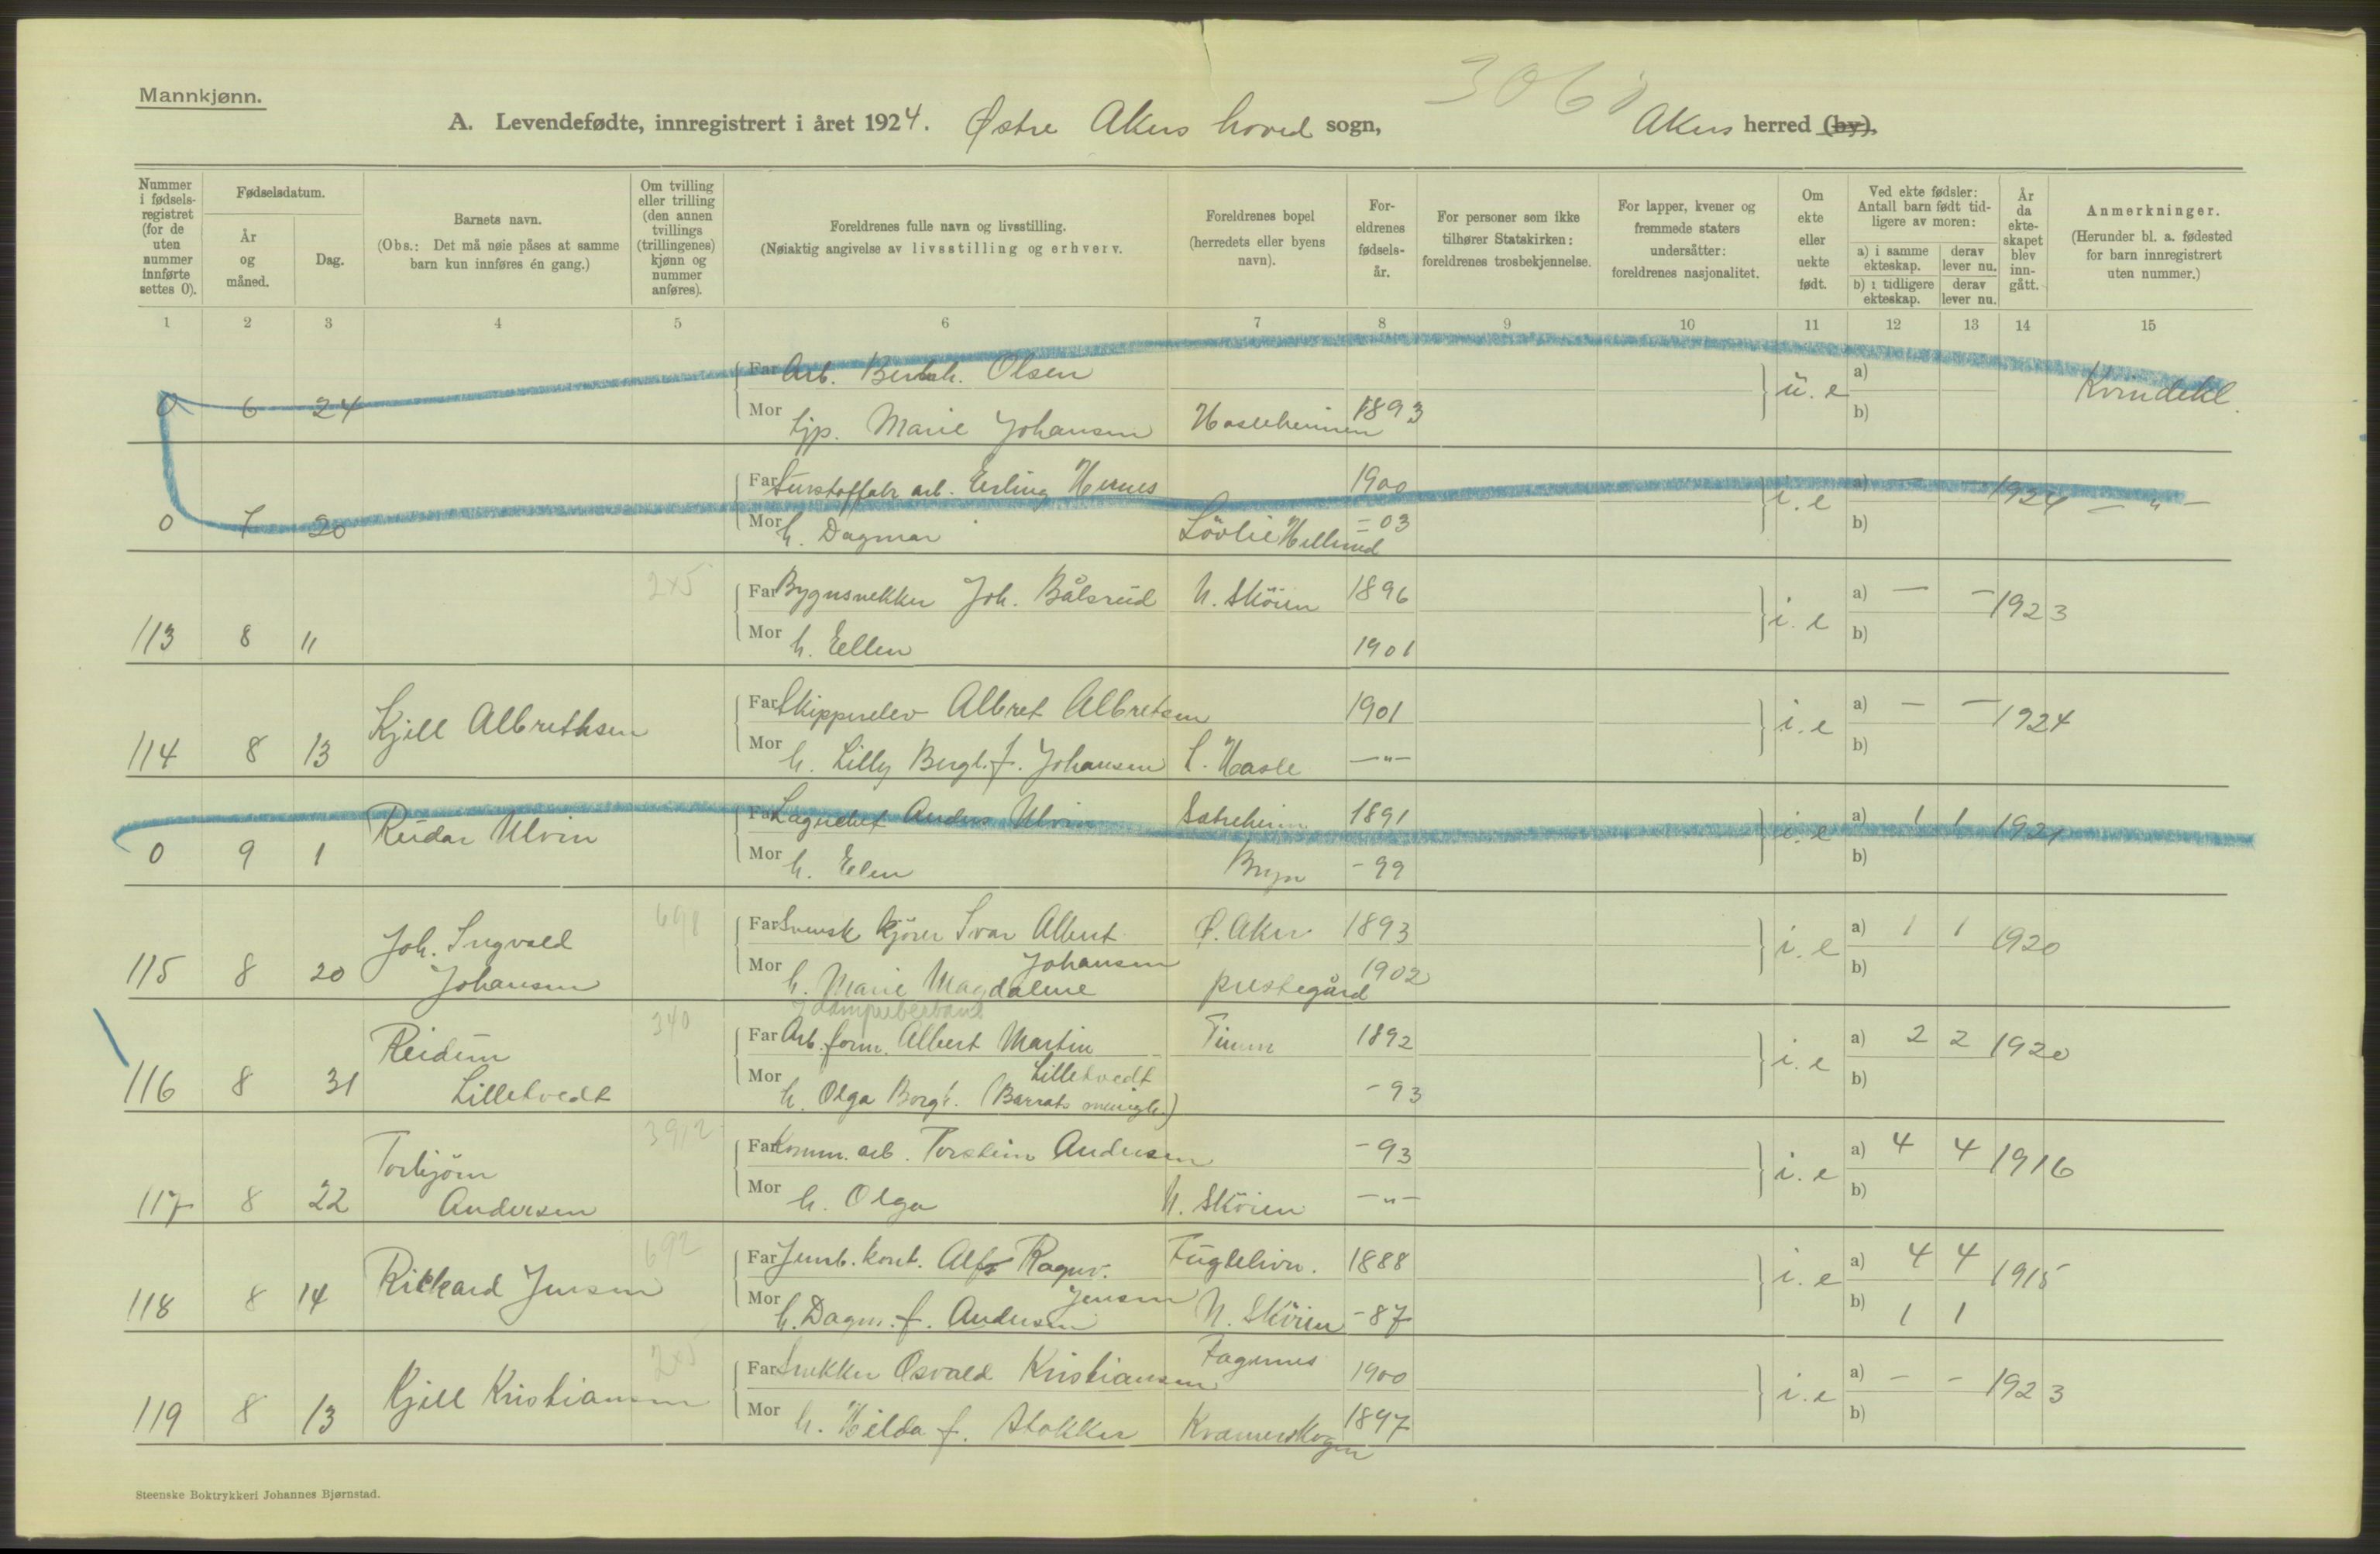 Mannkjønn.
306
A. Levendefødte, innregistrert i året 1924. Østre Akers hoved sogn, Akers herred (by).
Nummer i fødsels-registret (for de uten nummer innførte settes 0).
Fødselsdatum.
År og måned.
Dag.
Barnets navn.
(Obs.: Det må nøie påses at samme barn kun innføres én gang.)
Om tvilling eller trilling (den annen tvillings (trillingenes) kjønn og nummer anføres).
Foreldrenes fulle navn og livsstilling.
(Nøiaktig angivelse av livsstilling og erhverv.
Foreldrenes bopel (herredets eller byens navn).
For-eldrenes fødsels-år.
For personer som ikke tilhører Statskirken: foreldrenes trosbekjennelse.
For lapper, kvener og fremmede staters undersåtter: foreldrenes nasjonalitet.
Om ekte eller uekte født.
Ved ekte fødsler: Antall barn født tid-ligere av moren:
a) i samme ekteskap.
derav lever nu.
b) i tidligere ekteskap.
derav lever nu.
År da ekte-skapet blev inn-gått.
Anmerkninger.
(Herunder bl. a. fødested for barn innregistrert uten nummer.)
1 2 3 4 5 6 7 8 9 10 11 12 13 14 15
Far Arb. Olsen a)
0 6 24 u. e Kvindekl.
Mor tjp. Marie Johansen Hasleheimen 1893 b)
Far arb. Erling Hernes 1900 a) — — 1924
0 7 20 i. e — " —
Mor h. Dagmar Lövlie Hellerud - 03 b)
2x5 Far Bygnsnekker Joh. Bålsrud N. Sköien 1896 a) — — 1923
113 8 11 i. e
Mor h. Ellen 1901 b)
Far Albret Albretsen 1901 a) — — 1924
114 8 13 Kjell Albrethsen i. e
Mor h. Lilly Bergl. f. Johansen Hasle —"— b)
Far Lagerchef Anders Ulvin 1891 a) 1 1 1921
0 9 1 Reidar Ulvin i. e
Mor h. Elen Bryn - 99 b)
698 Far Svensk kjörer Ivar Albert Ø. Aker 1893 a) 1 1 1920
115 8 20 Joh. Ingvald Johansen i. e
Johansen
Mor h. Marie Magdalene prestegård 1902 b)
340 Far Arb. form. Albert Martin 1892 a) 2 2 1920
116 8 31 Lilletvedt i. e
Lilletvedt
Mor h. Olga Borgh. - 93 b)
3912 Far Komm. arb. Torstein Andersen - 93 a) 4 4 1916
117 8 22 Torbjörn Andersen i. e
Mor h. Olga N. Sköien —"— b)
692 Far Jernb. kont. Alf Ragnv. 1888 a) 4 4 1915
118 8 14 Rikkard Jensen i. e
Jensen
Mor h. Dagm. f. Andersen N. Sköien - 87 b) 1 1
2x5 Far Snekker Osvald Kristiansen Fagernes 1900 a) - - 1923
119 8 13 Kjell Kristiansen i. e
Mor h. Hilda f. Stokker 1897 b)
Steenske Boktrykkeri Johannes Bjørnstad.